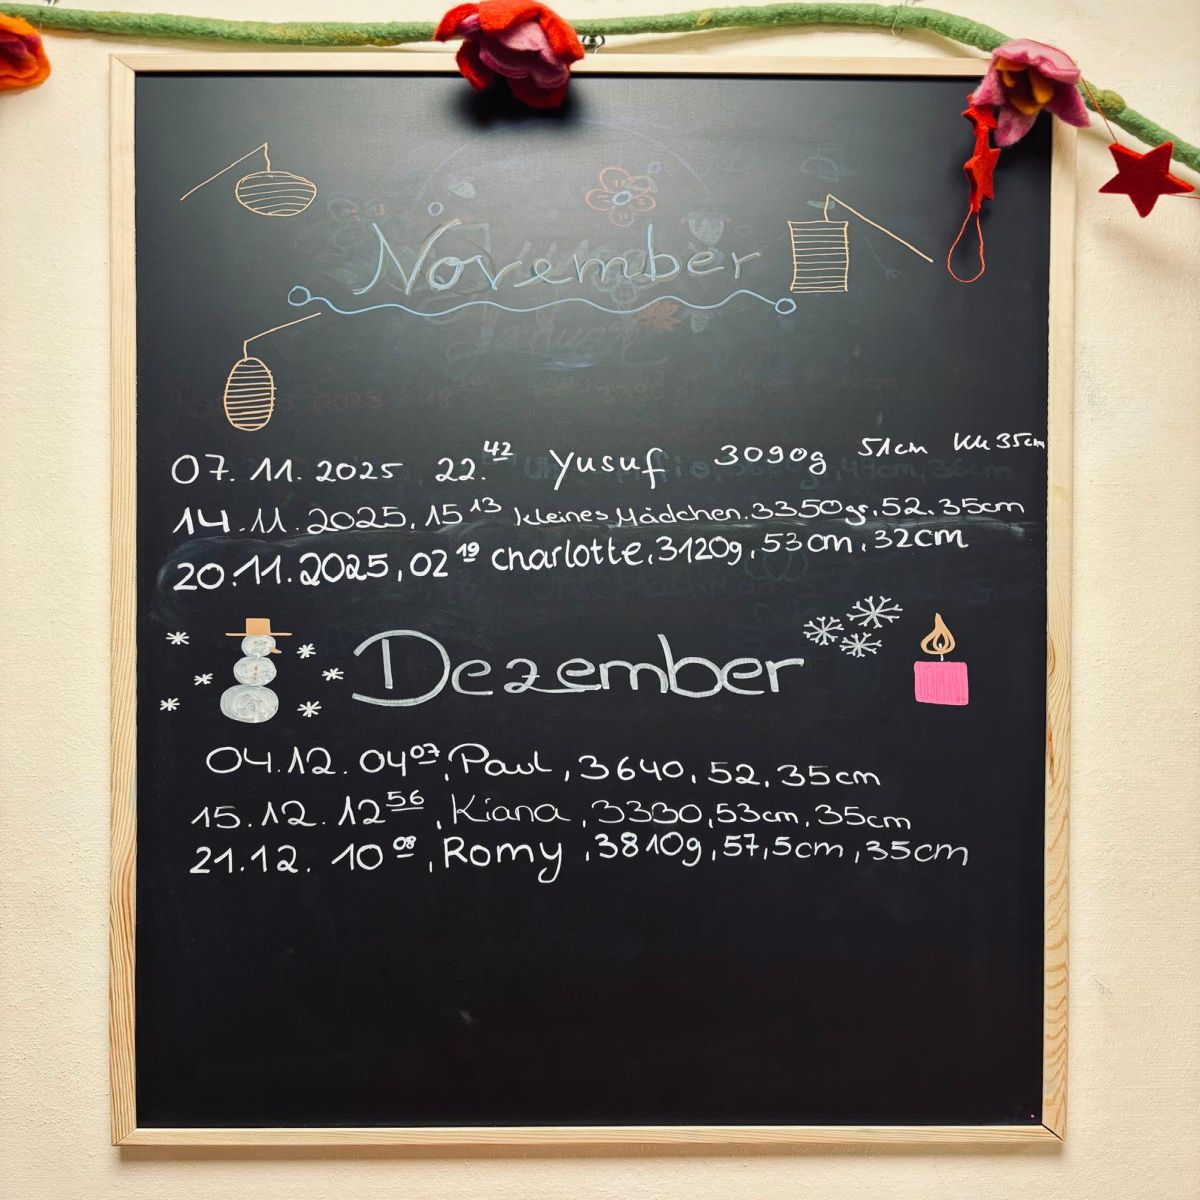 November
07. 11. 2025 22.42 Yusuf 3090g 51cm KU 35cm
14.11.2025, 15 13 kleines Mädchen, 3350gr, 52, 35cm
20.11.2025, 02 19 Charlotte, 3120g, 53cm, 32cm
Dezember
04.12. 04 07, Paul, 3640, 52, 35cm
15.12. 12 56, Kiana, 3330, 53cm, 35cm
21.12. 10 08, Romy, 3810g, 57,5cm, 35cm